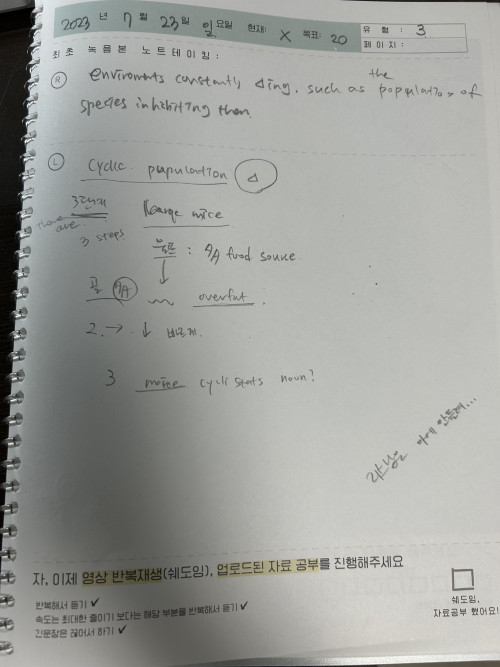 2023 년 7 월 23 일 일 요일 현재: X 목표: 20
유 형 : 3
페 이 지 :
최 초 녹 음 본 노 트 테 이 킹 :
R enviroments constantly Δing, such as the populations of
species inhibiting them.
L cyclic population Δ
3단계 large mice
There are 3 steps
: food source
overfat.
2. → ↓ 빠르게.
3 cycle starts
자, 이제 영상 반복재생(쉐도잉), 업로드된 자료 공부를 진행해주세요
반복해서 듣기 ✓
속도는 최대한 줄이기 보다는 해당 부분을 반복해서 듣기 ✓
긴문장은 끊어서 하기 ✓
쉐도잉,
자료공부 했어요!